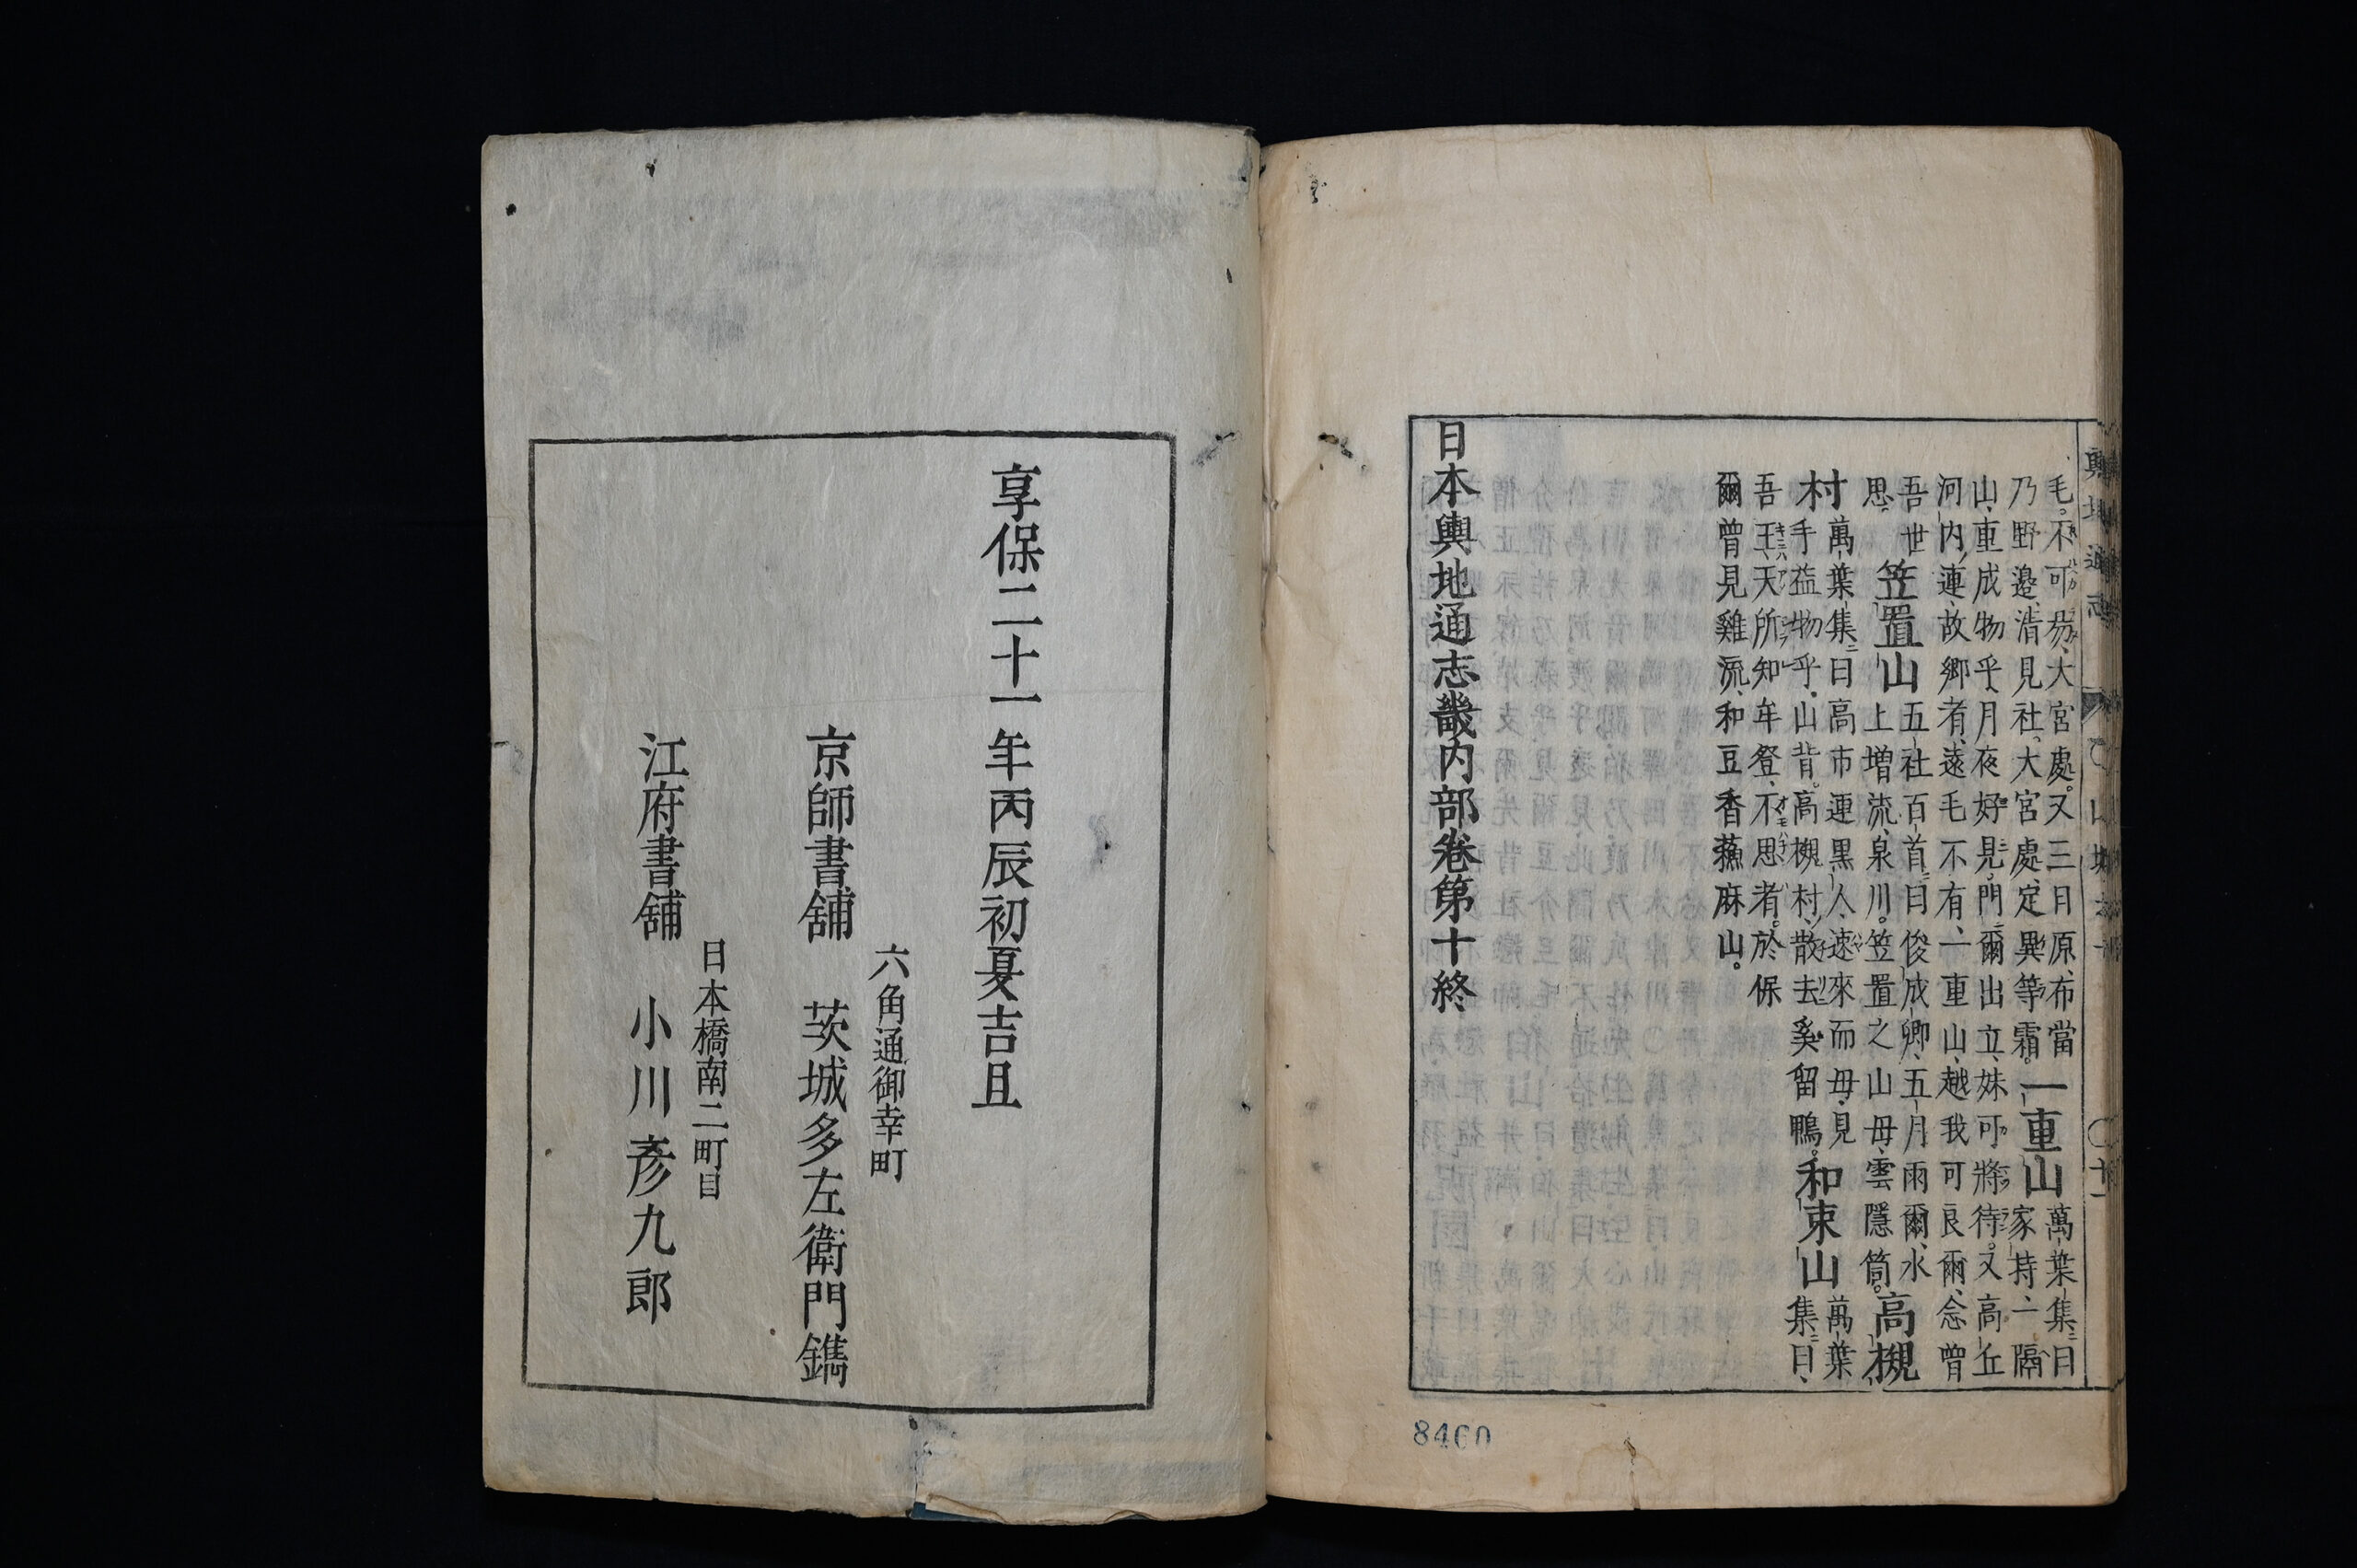 毛。不可易、大宮處。又三日原、布當
乃野邊、清見社、大宮處、定異等霜。
一重山
萬葉集曰
家持、一隔
山、重成物乎、月夜好見、門爾出立、妹可將待。又高丘
河內連、故鄉者、遠毛不有、一重山、越我可良爾、念曾
吾世
思
笠置山
五社百首曰俊成卿、五月雨爾、水
上增流、泉川。笠置之山毋、雲隱筒。
高槻
村
萬葉集曰高市連黑人、速來而毋、見
手益物乎、山背。高槻村、散去奚留鴨。
和束山
萬葉
集曰、
吾王、天所知牟登、不思者。於保
爾曾見雞流、和豆香蘓麻山。
日本輿地通志畿内部卷第十終
8460
享保二十一年丙辰初夏吉旦
六角通御幸町
京師書舖 茨城多左衛門鐫
日本橋南二町目
江府書舖 小川彥九郎